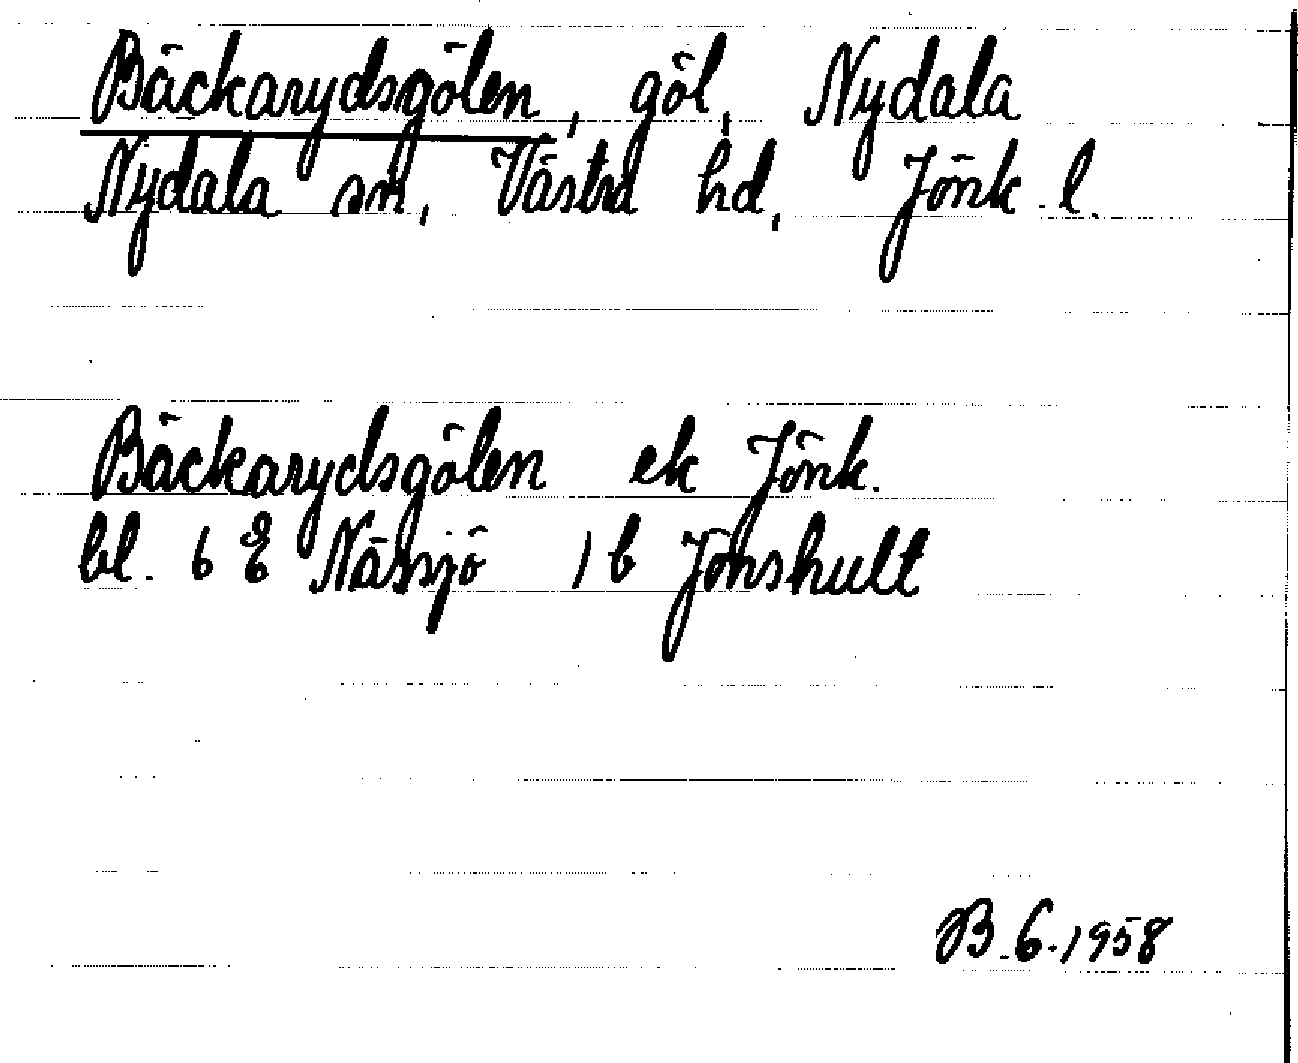 Bäckarydsgölen, göl, Nydala
Nydala sn, Västra hd, Jönk. l.
Bäckarydsgölen ek Jönk.
bl. 6 E Nässjö 1 b Jönshult
B. 6. 1958